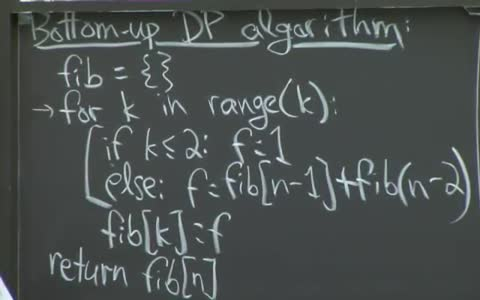 Bottom-up DP algorithm:
fib = {}
→ for k in range(k):
if k≤2: f=1
else: f=fib[n-1]+fib(n-2)
fib[k]=f
return fib[n]